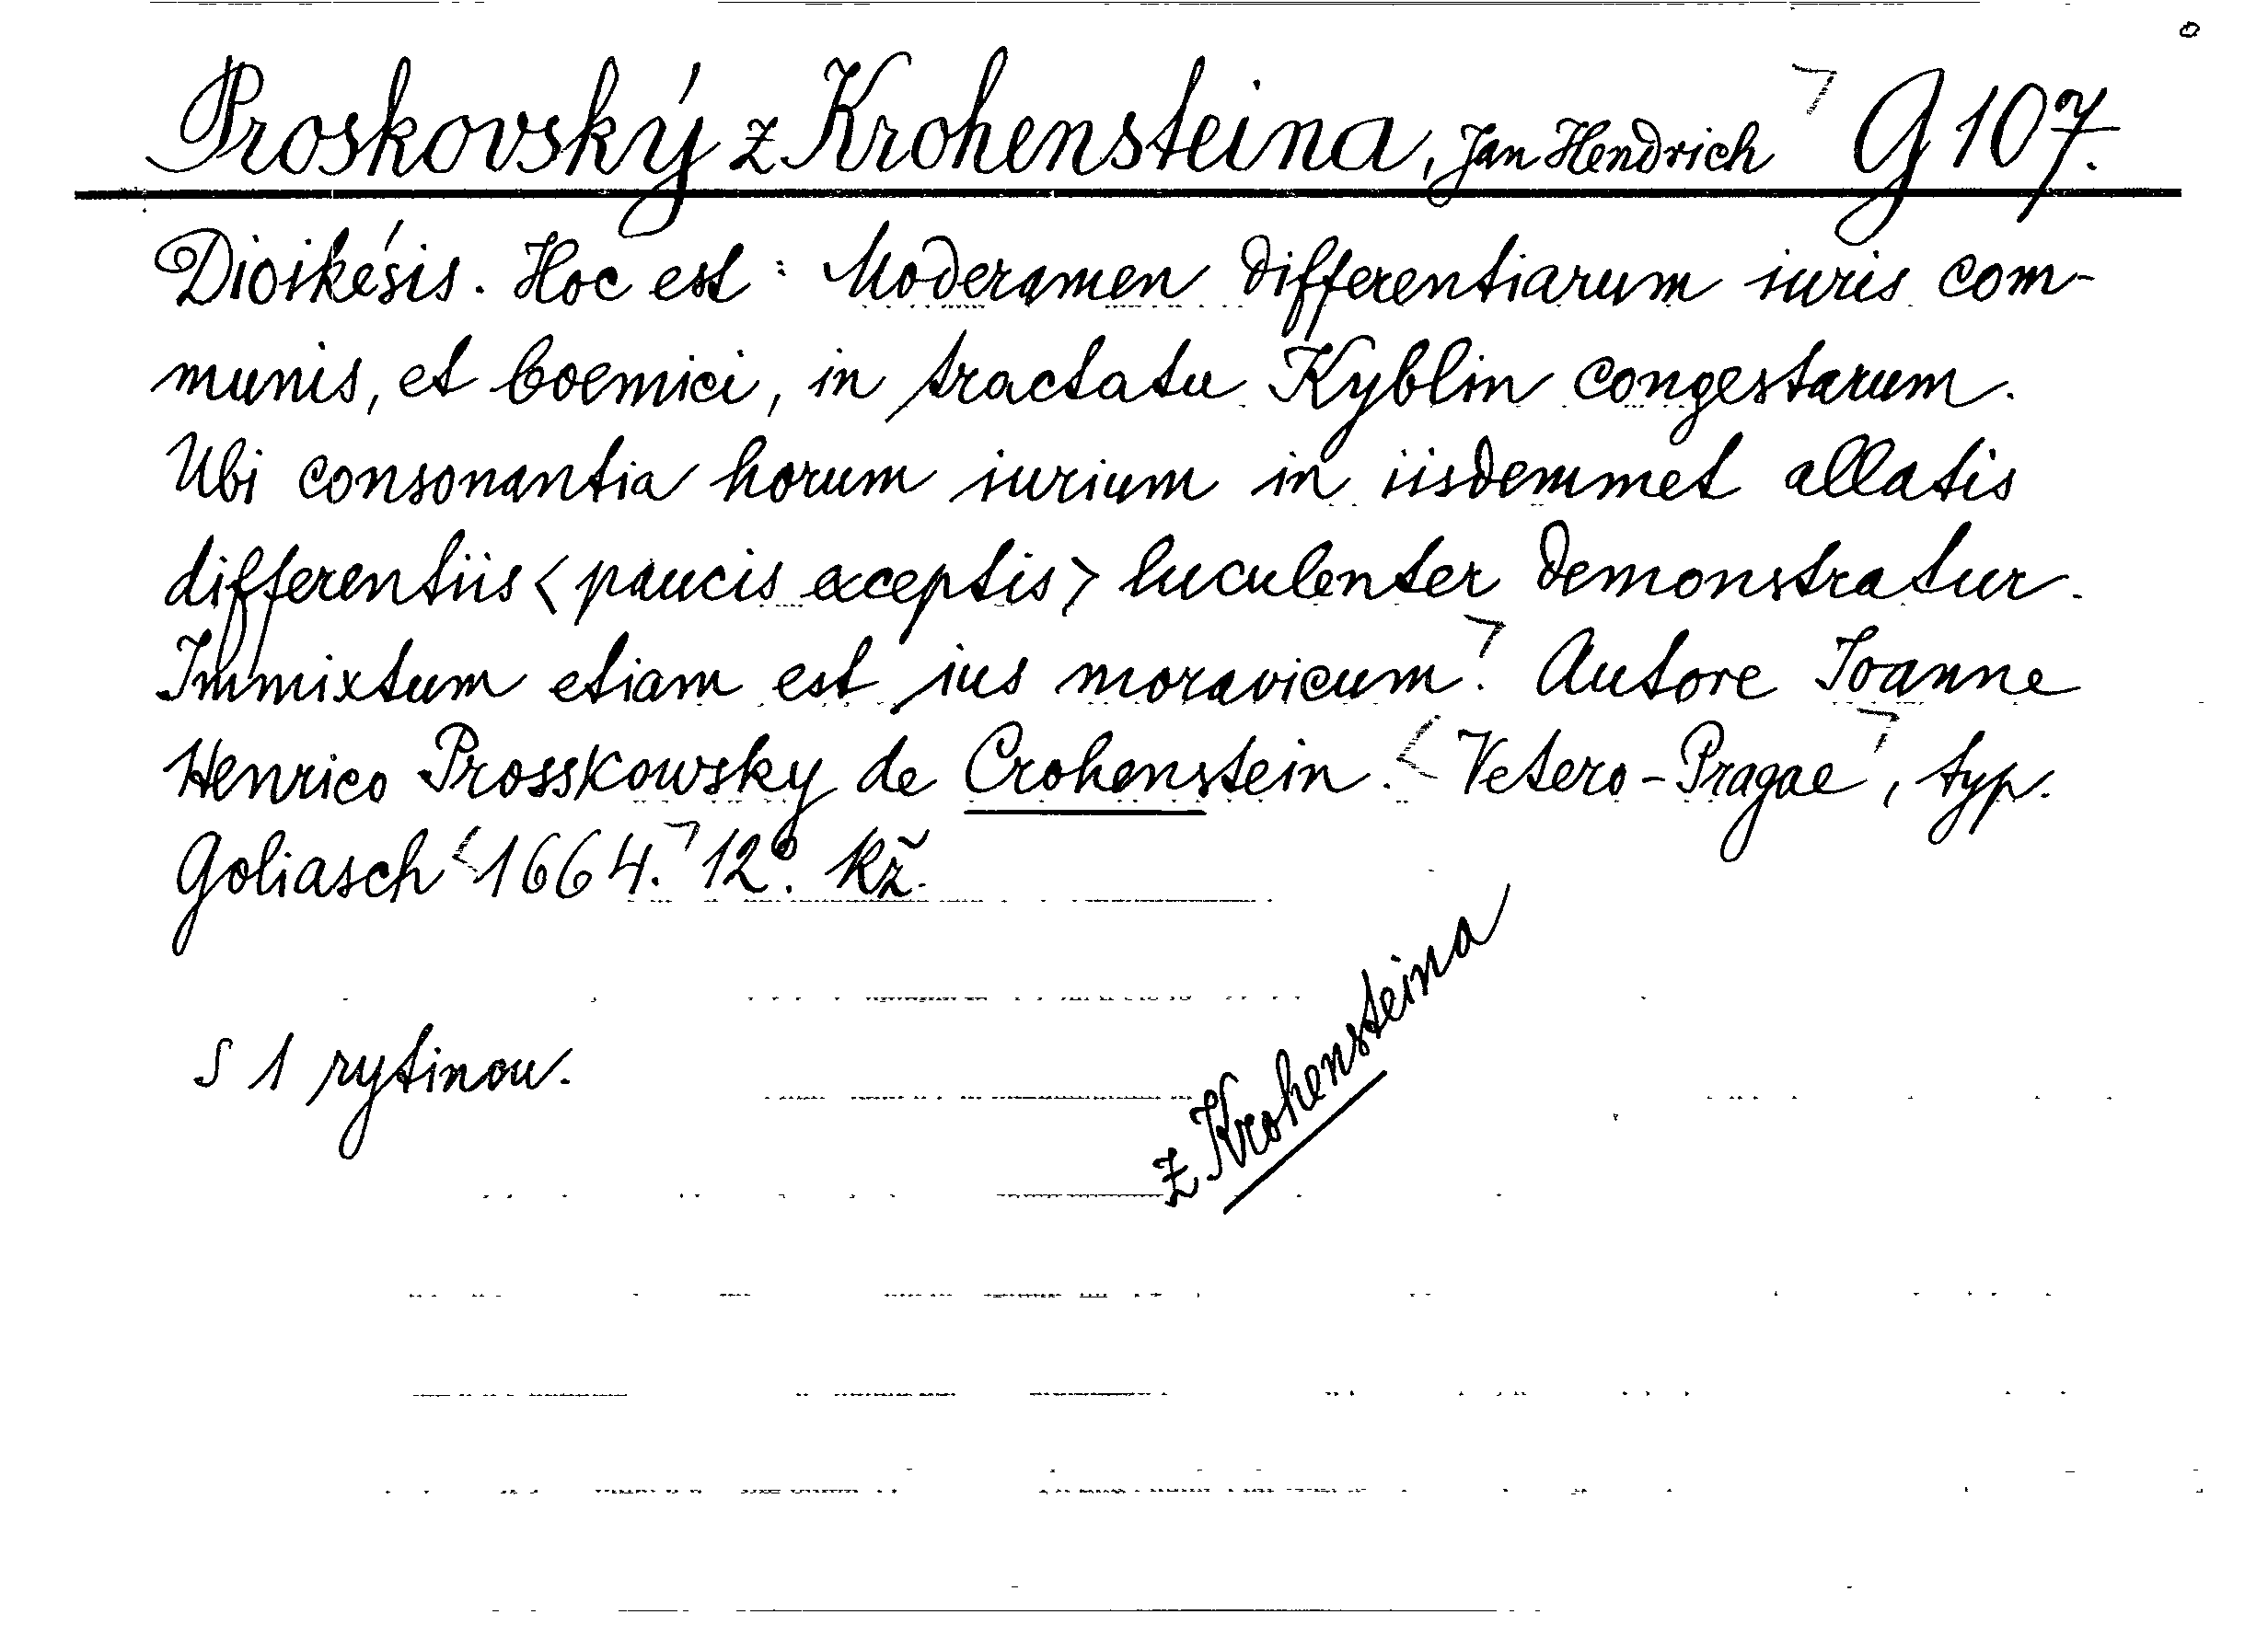 Proskovský z Krohensteina, Jan Hendrich G 107.
Dioikésis. Hoc est: Moderamen differentiarum iuris com-
munis, et boemici, in tractatu Kyblin congestarum.
Ubi consonantia horum iurium in iisdemmet allatis
differentiis <paucis exceptis> luculenter demonstratur.
Immixtum etiam est ius moravicum. Autore Ioanne
Henrico Prosskowsky de Crohenstein. Vetero-Pragae, typ.
Goliasch 1664. 12°. Kž.
S 1 rytinou.
z Krohensteina